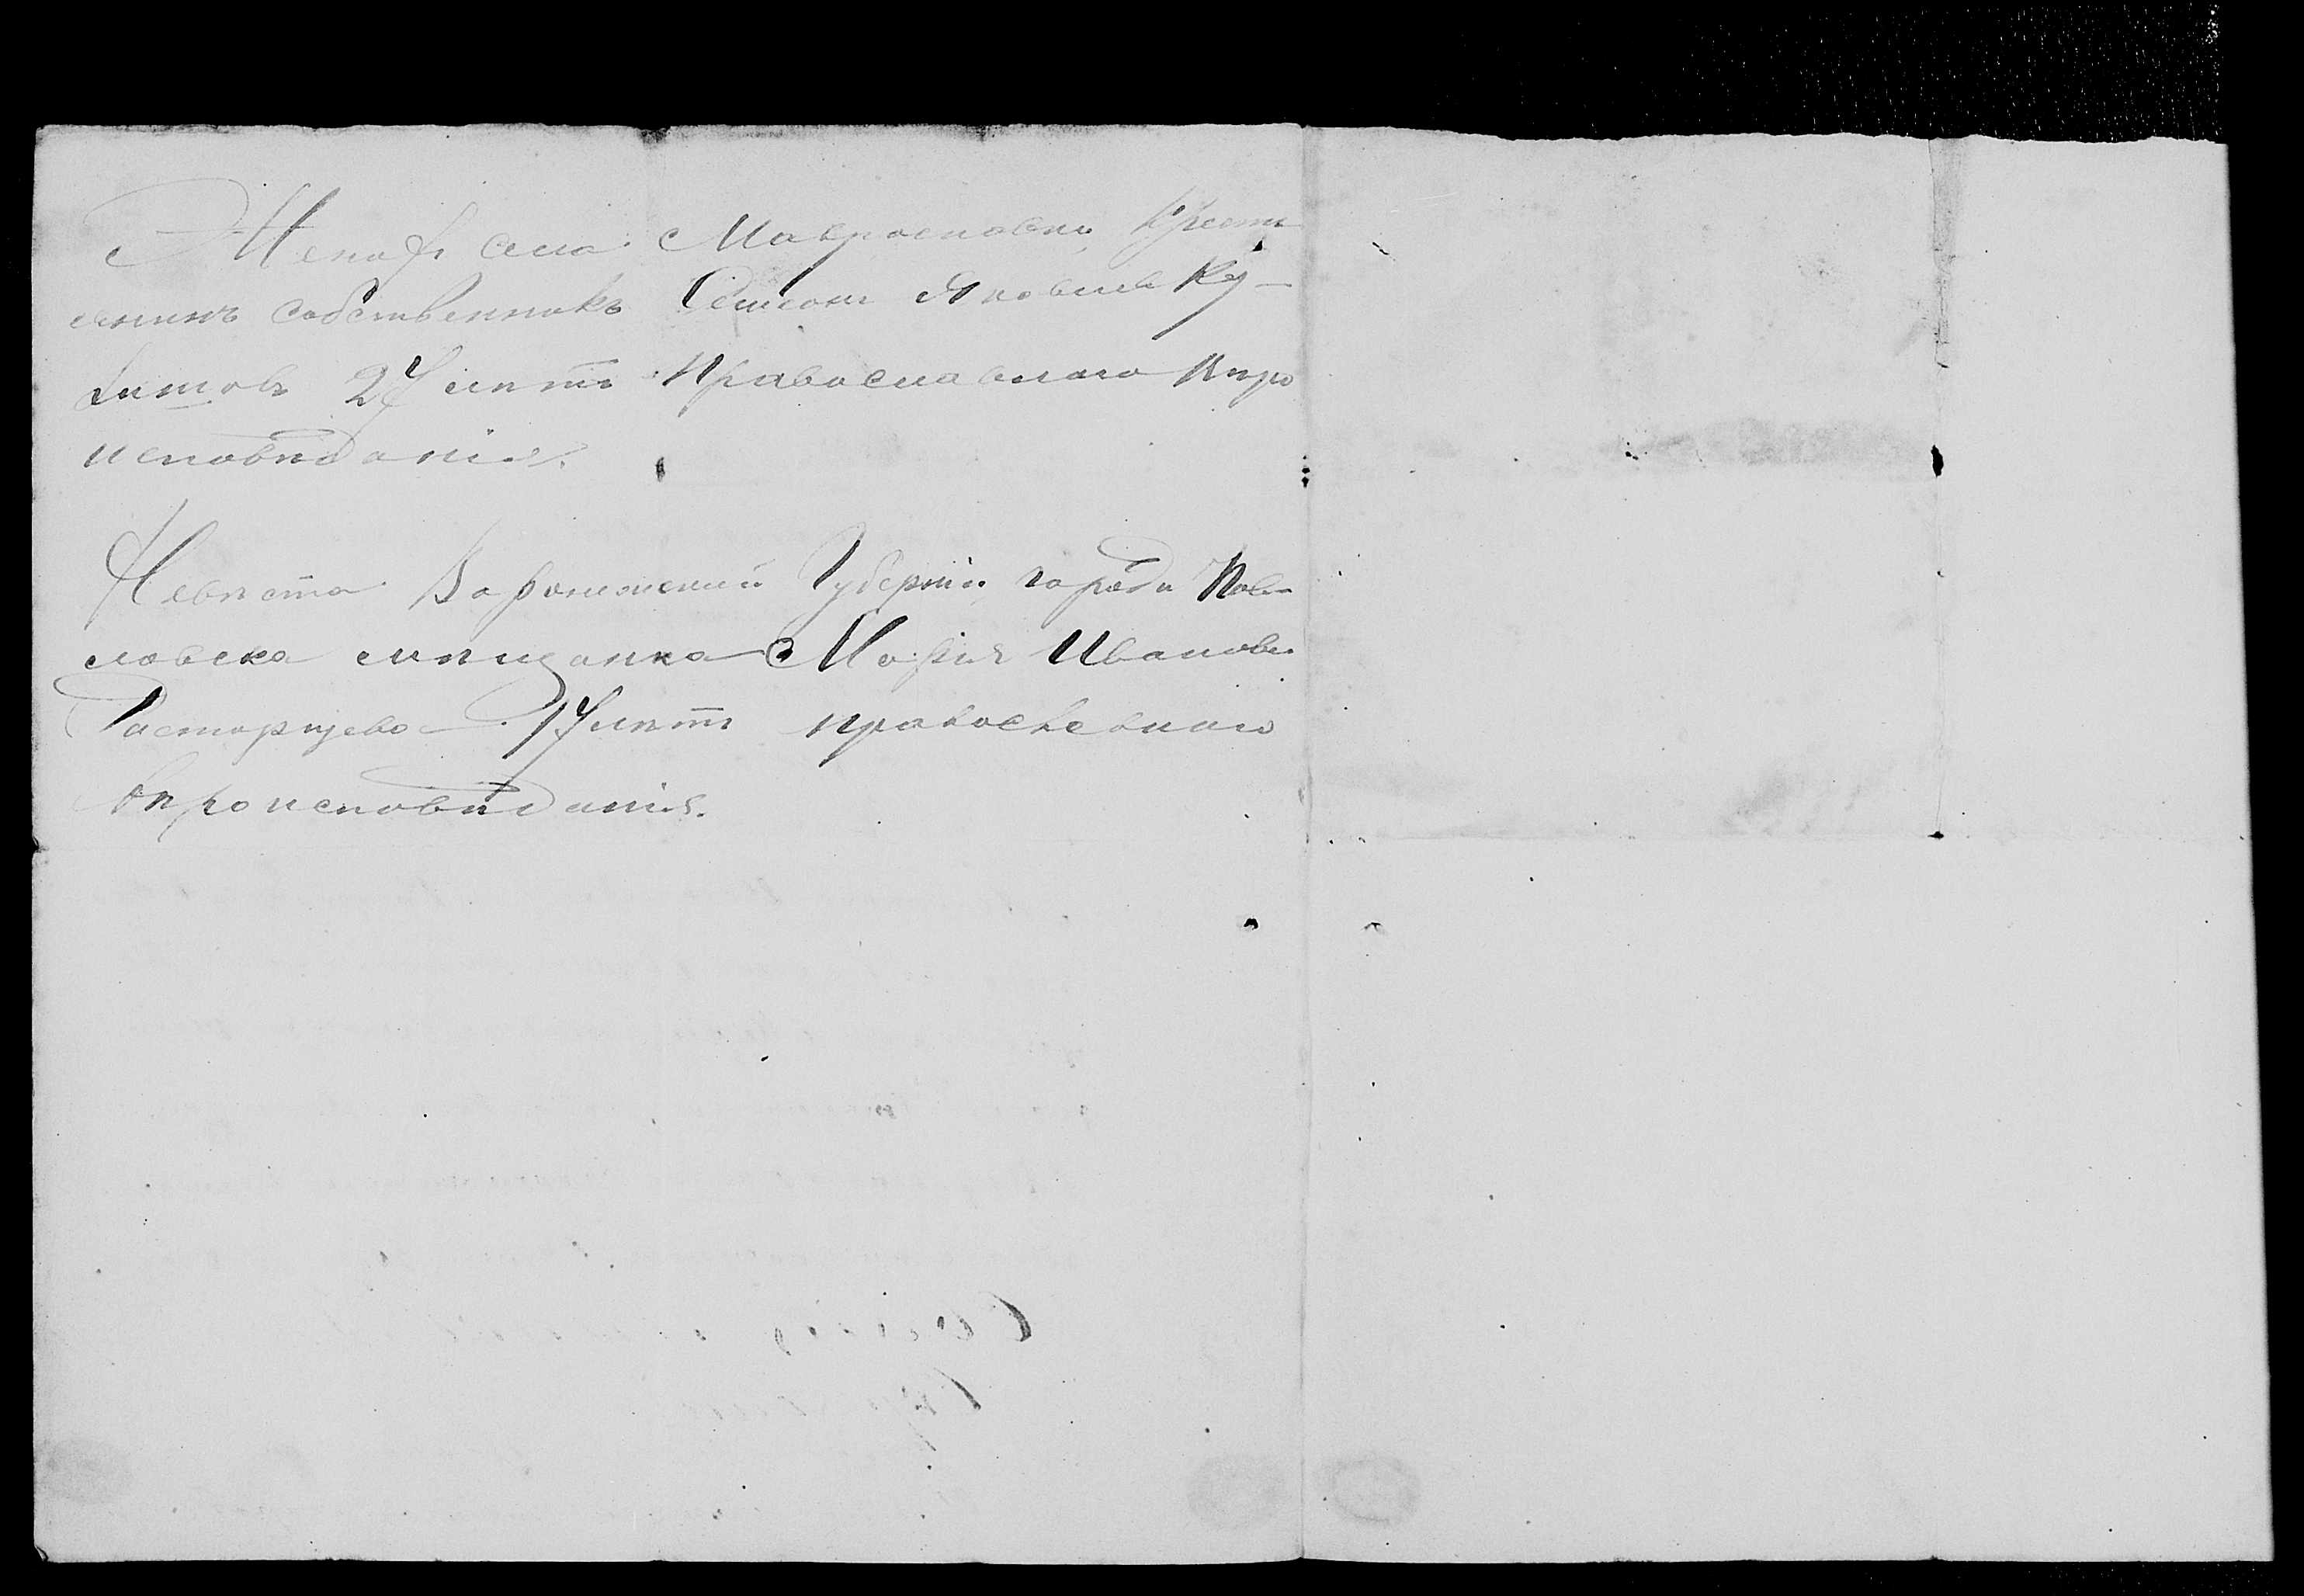 Женихъ села Маврославки Кресть
янинъ собственникъ Семенъ Яковлевъ Ку-
литовъ 27 лѣтъ Православнаго Вѣро
исповѣданія.
Невѣста Воронижской Губерніи города Пав-
ловска мѣщанка Марія Иванова
Расторгуева 17 лѣтъ православнаго
вѣроисповѣданія.